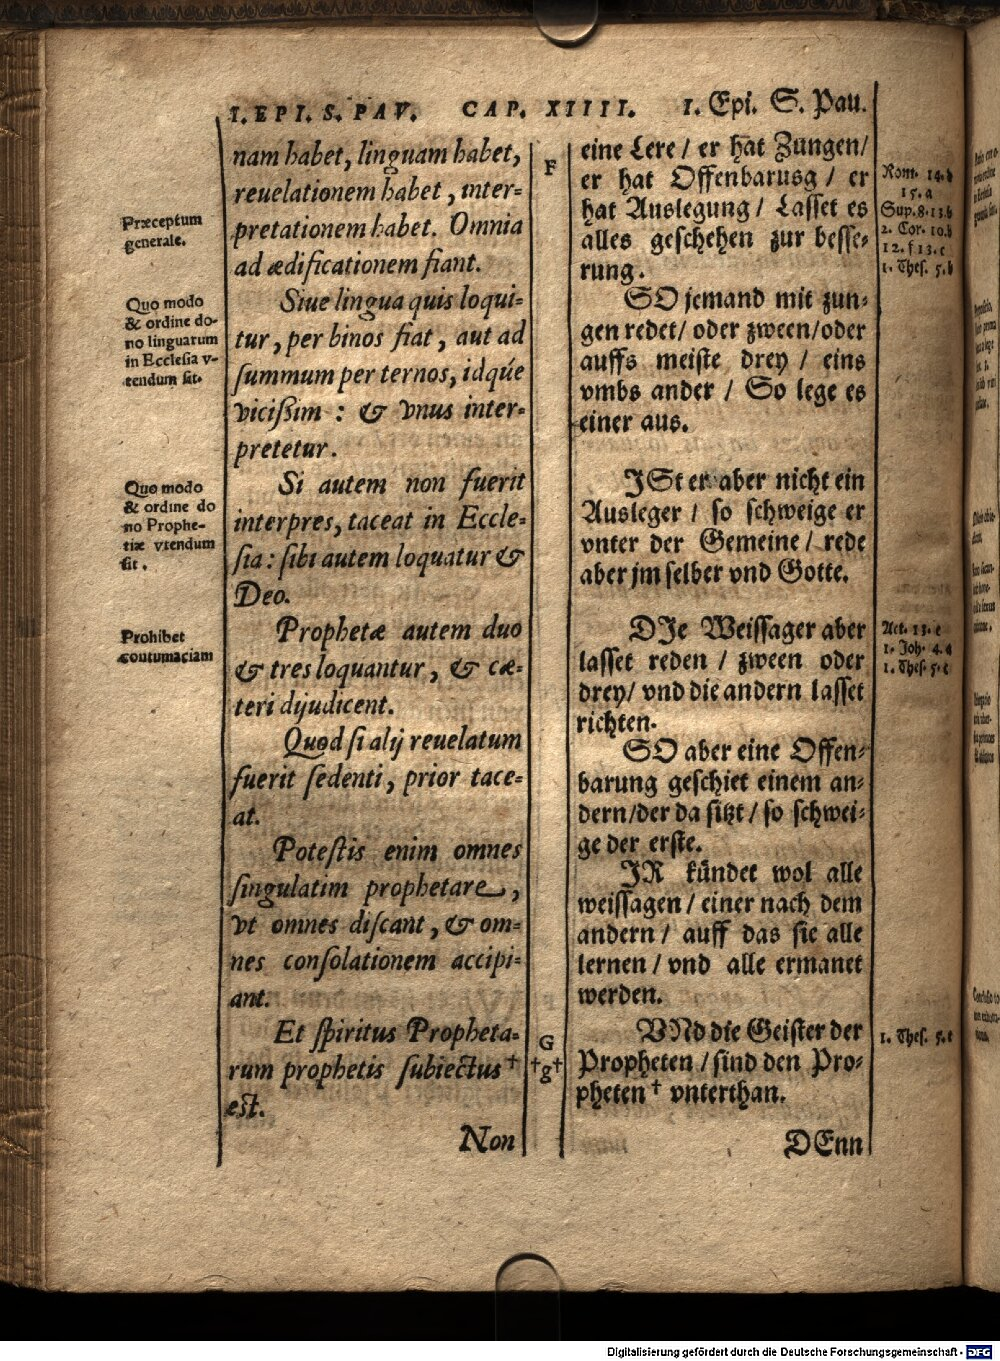 I. EPI. S. PAV. CAP. XIIII. 1. Epi. S. Pau.
Præceptum
generale.
Quo modo
& ordine do-
no linguarum
in Ecclesia v-
tendum sit.
Quo modo
& ordine do
no Prophe-
tiæ vtendum
sit.
Prohibet
contumaciam
nam habet, linguam habet,
reuelationem habet, inter-
pretationem habet. Omnia
ad ædificationem fiant.
Siue lingua quis loqui-
tur, per binos fiat, aut ad
summum per ternos, idq́ue
vicißim: & vnus inter-
pretetur.
Si autem non fuerit
interpres, taceat in Eccle-
sia: sibi autem loquatur &
Deo.
Prophetæ autem duo
& tres loquantur, & cæ-
teri dijudicent.
Quod si alij reuelatum
fuerit sedenti, prior tace-
at.
Potestis enim omnes
singulatim prophetare,
vt omnes discant, & om-
nes consolationem accipi-
ant.
Et spiritus Propheta-
rum prophetis subiectus†
est.
Non
F
G
†g†
eine Lere / er hat Zungen/
er hat Offenbarusg / er
hat Auslegung / Lasset es
alles geschehen zur besse-
rung.
SO jemand mit zun-
gen redet/ oder zween/oder
auffs meiste drey / eins
vmbs ander / So lege es
einer aus.
JSt er aber nicht ein
Ausleger / so schweige er
vnter der Gemeine / rede
aber jm selber vnd Gotte.
DJe Weissager aber
lasset reden / zween oder
drey/ vnd die andern lasset
richten.
SO aber eine Offen-
barung geschiet einem an-
dern/der da sitzt / so schwei-
ge der erste.
JR kündet wol alle
weissagen / einer nach dem
andern / auff das sie alle
lernen / vnd alle ermanet
werden.
VNd die Geister der
Propheten / sind den Pro-
pheten † vnterthan.
DEnn
Rom. 14. d
15. a
Sup. 8. 13. b
2. Cor. 10. b
12. f 13. c
1. Thes. 5. b
Act. 13. e
1. Joh. 4. a
1. Thes. 5. c
1. Thes. 5. c
Digitalisierung gefördert durch die Deutsche Forschungsgemeinschaft - DFG